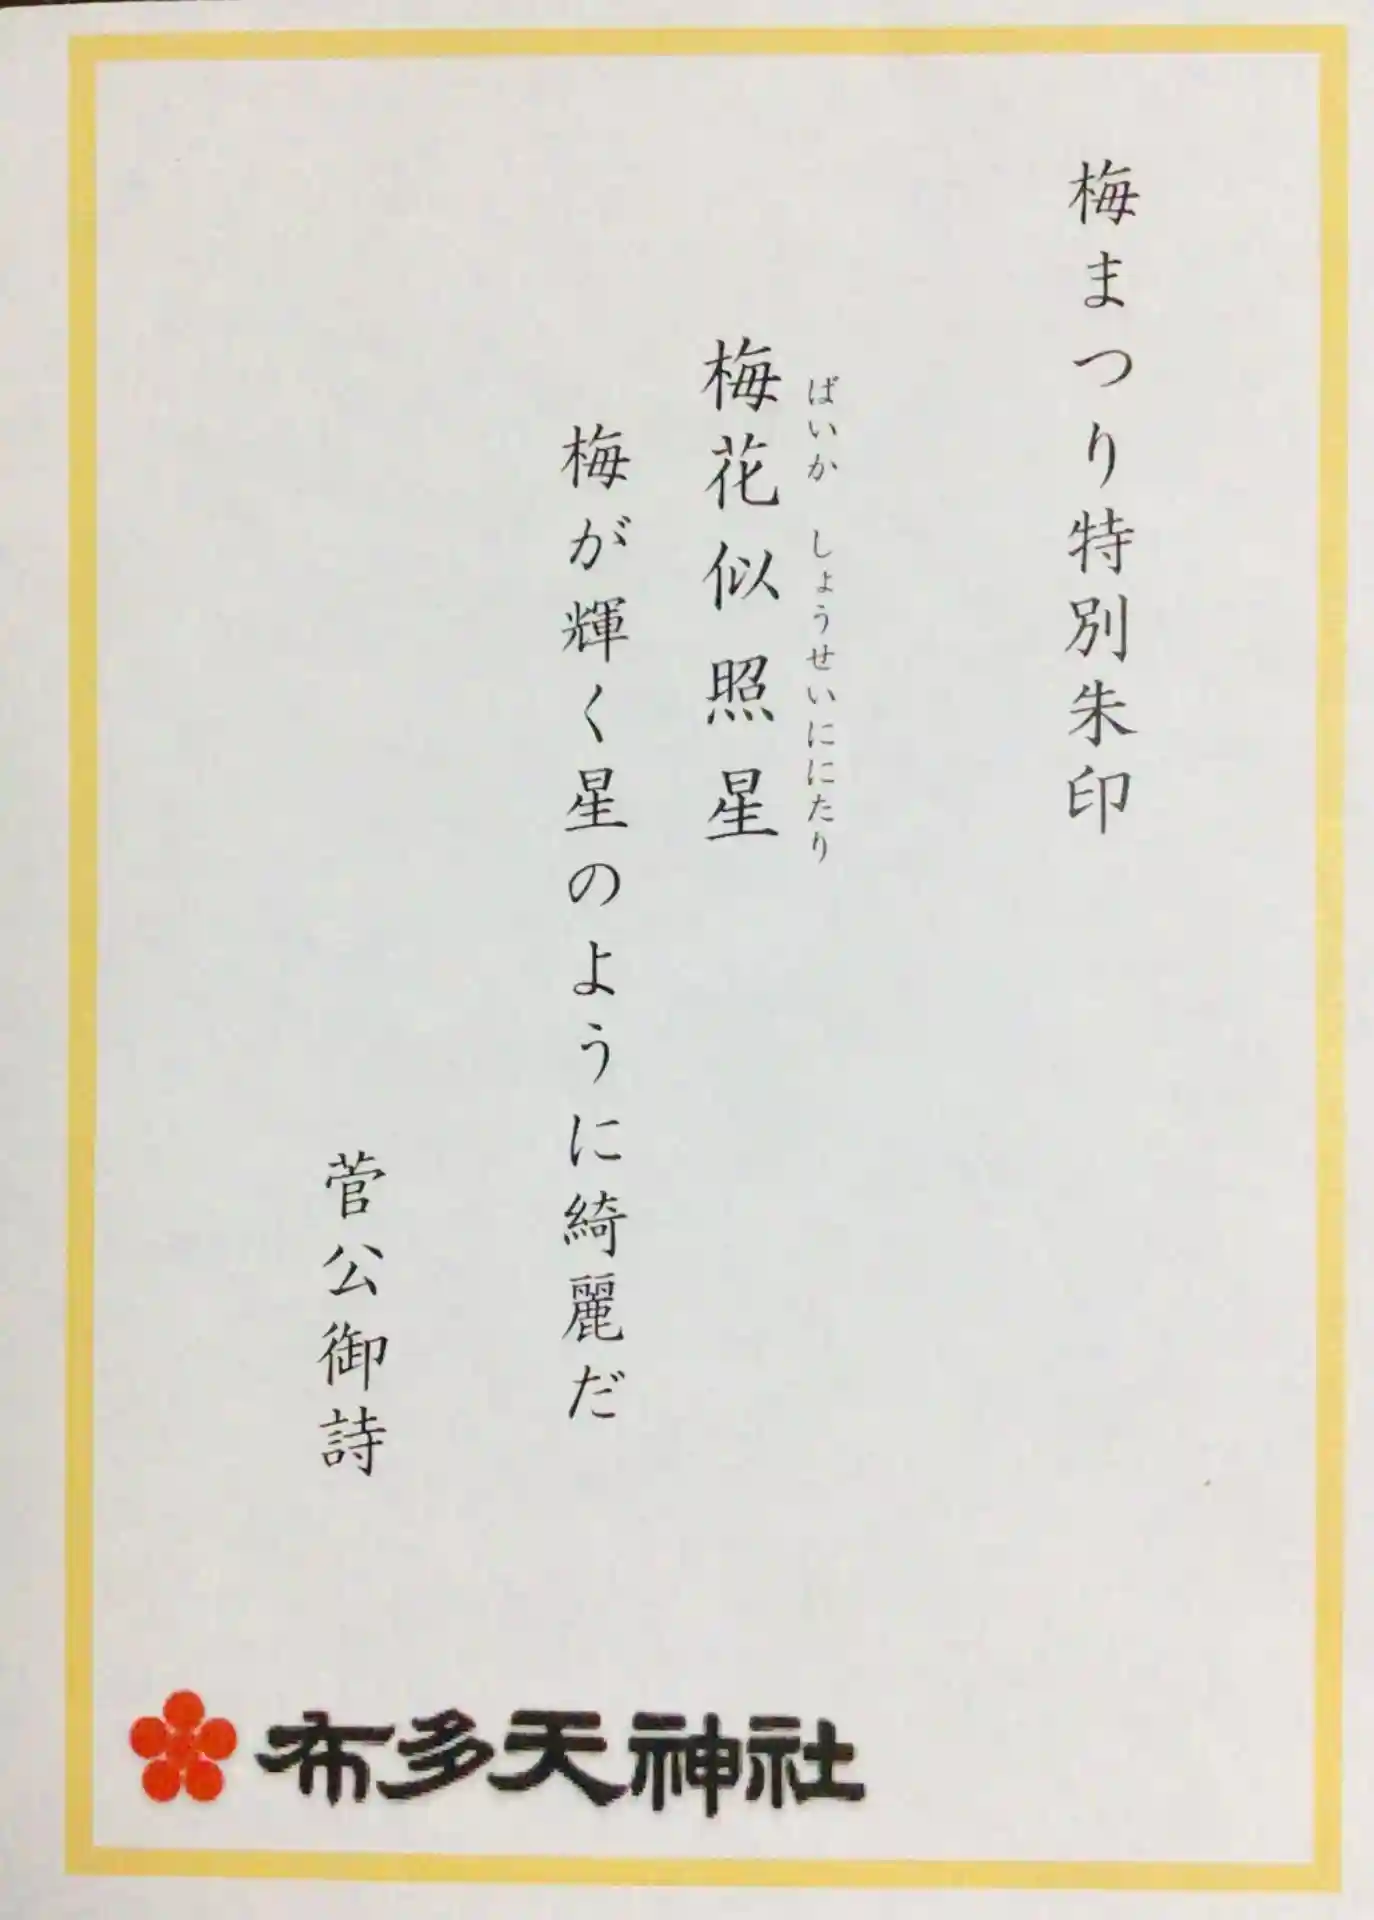 梅まつり特別朱印
ばいか しょうせいににたり
梅花似照星
梅が輝く星のように綺麗だ
菅公御詩
布多天神社